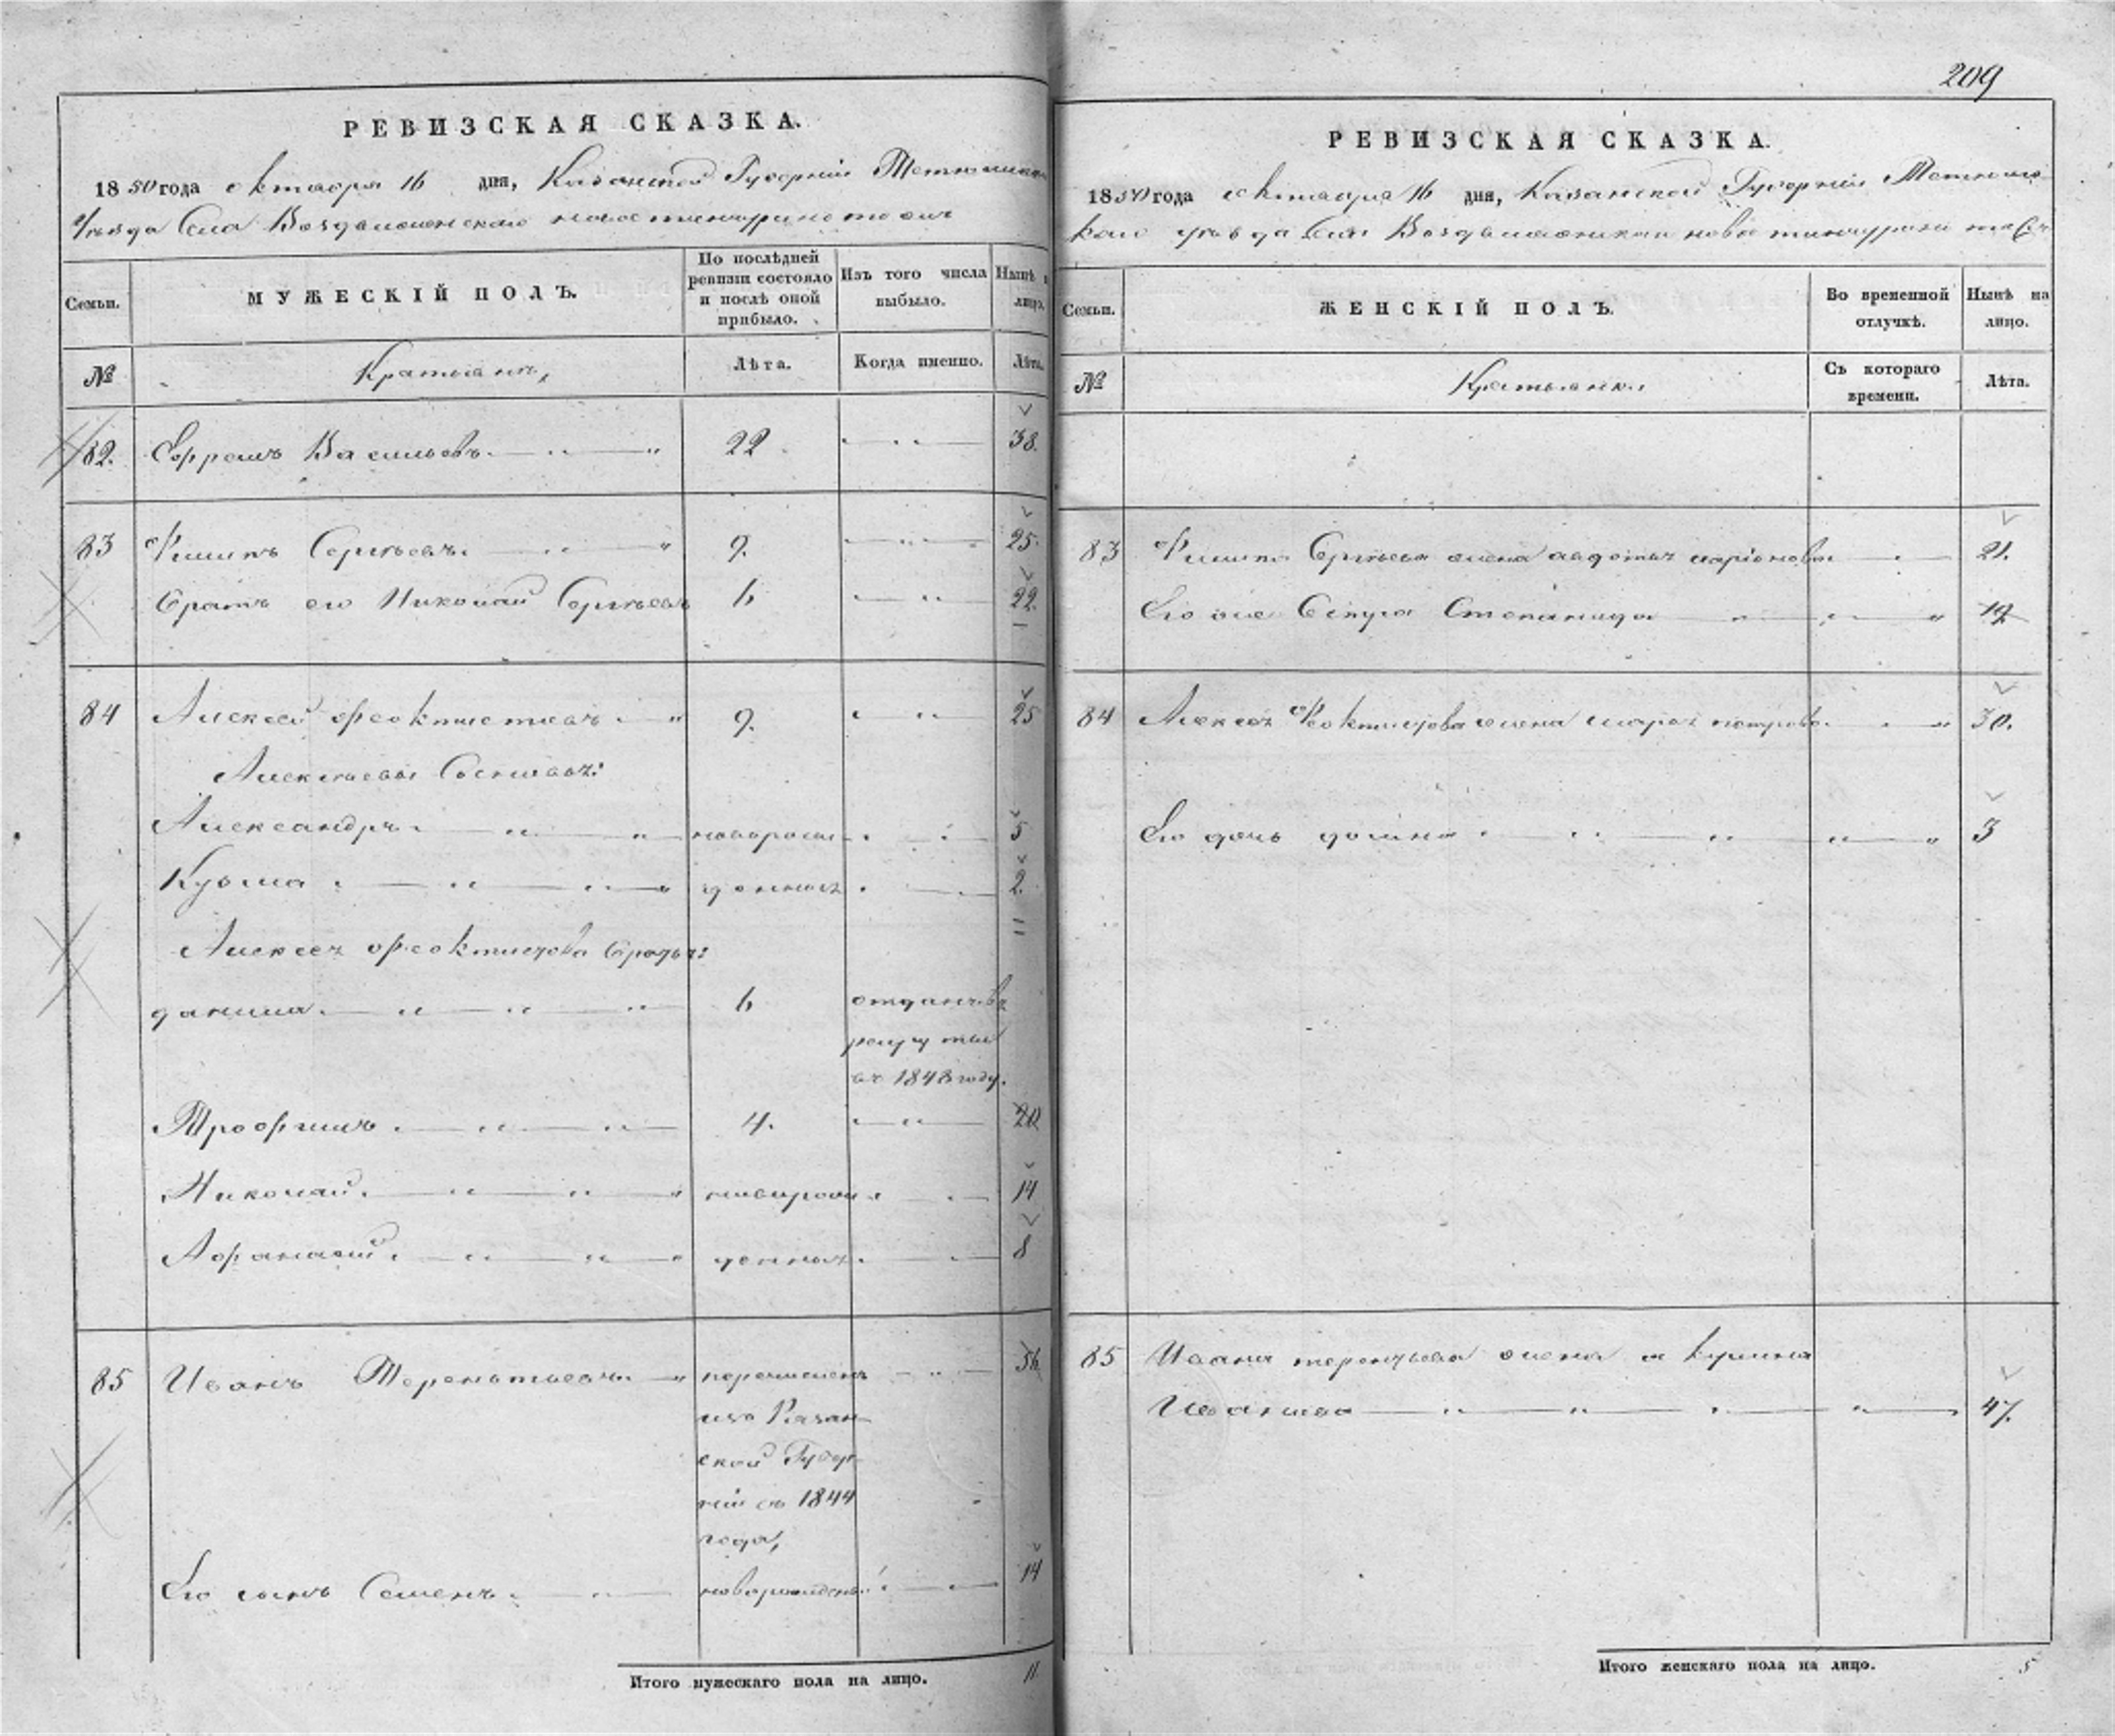 РЕВИЗСКАЯ СКАЗКА.
1850 года октября 16 дня, Казанской Губерніи
Уѣзда Села Воздвиженскаго
Семьи.
МУЖЕСКІЙ ПОЛЪ.
По послѣдней ревизіи состояло и послѣ оной прибыло.
Изъ того числа выбыло.
Нынѣ лицо.
№
Лѣта.
Когда именно.
Лѣта.
82. Ефремъ Васильевъ 22 38.
83 Филипъ Сергѣевъ. 9. 25.
братъ его Николай Сергѣевъ 6 22.
84 Алексей Феоктистовъ 9. 25
Алексѣевы Сыновья:
Александръ новорож 5
Кузьма денныя 2.
Алексея Феоктистова братья:
данила 6 отданъ въ
рекруты
въ 1848 году.
Трофимъ 4. 20
Николай новорож 14
Афанасий денныя 8
85 Иванъ Терентьевъ перечисленъ 56
изъ Казан
ской Губер
ніи съ 1844
года,
Его сынъ Семенъ новорожденъ 14
Итого мужескаго пола на лицо. 11
209
РЕВИЗСКАЯ СКАЗКА.
1850 года октября 16 дня, Казанской Губерніи
каго уѣзда Села
Семьи.
ЖЕНСКІЙ ПОЛЪ.
Во временной отлучкѣ.
Нынѣ на лицо.
№
Съ котораго времени.
Лѣта.
83 Филипа Сергѣева жена авдотья 21.
Его же Сестра Степанида 19
84 Алексея Феоктистова жена марья петрова 30.
Его дочь домна 3
85 Ивана терентьева жена акулина
Иванова 47.
Итого женскаго пола на лицо. 5